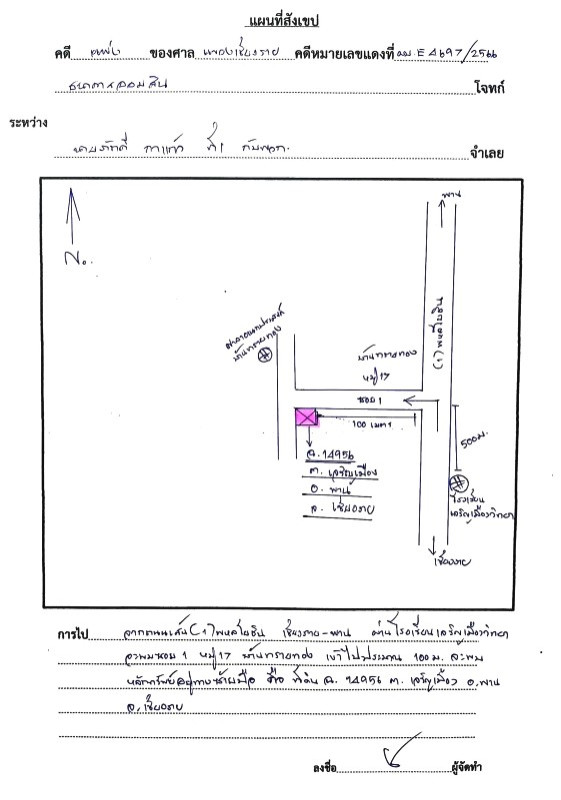 แผนที่สังเขป
คดี แพ่ง ของศาล แพ่งเชียงราย คดีหมายเลขแดงที่ ผบ.E4697/2566
ธนาคารออมสิน โจทก์
ระหว่าง
นายภักดี กาแก้ว ที่1 กับพวก. จำเลย
พาน
No.
(1) พหลโยธิน
ศาลาอเนกประสงค์
บ้านทรายทอง
บ้านทรายทอง
หมู่17
ซอย 1
100 เมตร
500ม.
ฉ.14956
ต. เจริญเมือง
อ. พาน
จ. เชียงราย
โรงเรียน
เจริญเมืองวิทยา
เชียงราย
การไป จากถนนเส้น(1)พหลโยธิน เชียงราย-พาน ผ่านโรงเรียนเจริญเมืองวิทยา
จะพบซอย 1 หมู่17 บ้านทรายทอง เข้าไปประมาณ 100ม. จะพบ
หลักทรัพย์อยู่ทางซ้ายมือ คือ ที่ดิน ฉ. 14956 ต. เจริญเมือง อ.พาน
จ.เชียงราย
ลงชื่อ ผู้จัดทำ